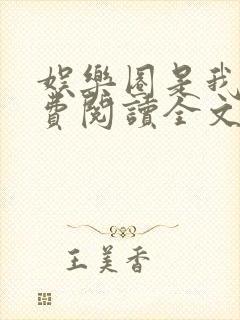 娛樂圈是我
費閱讀全文
王美香